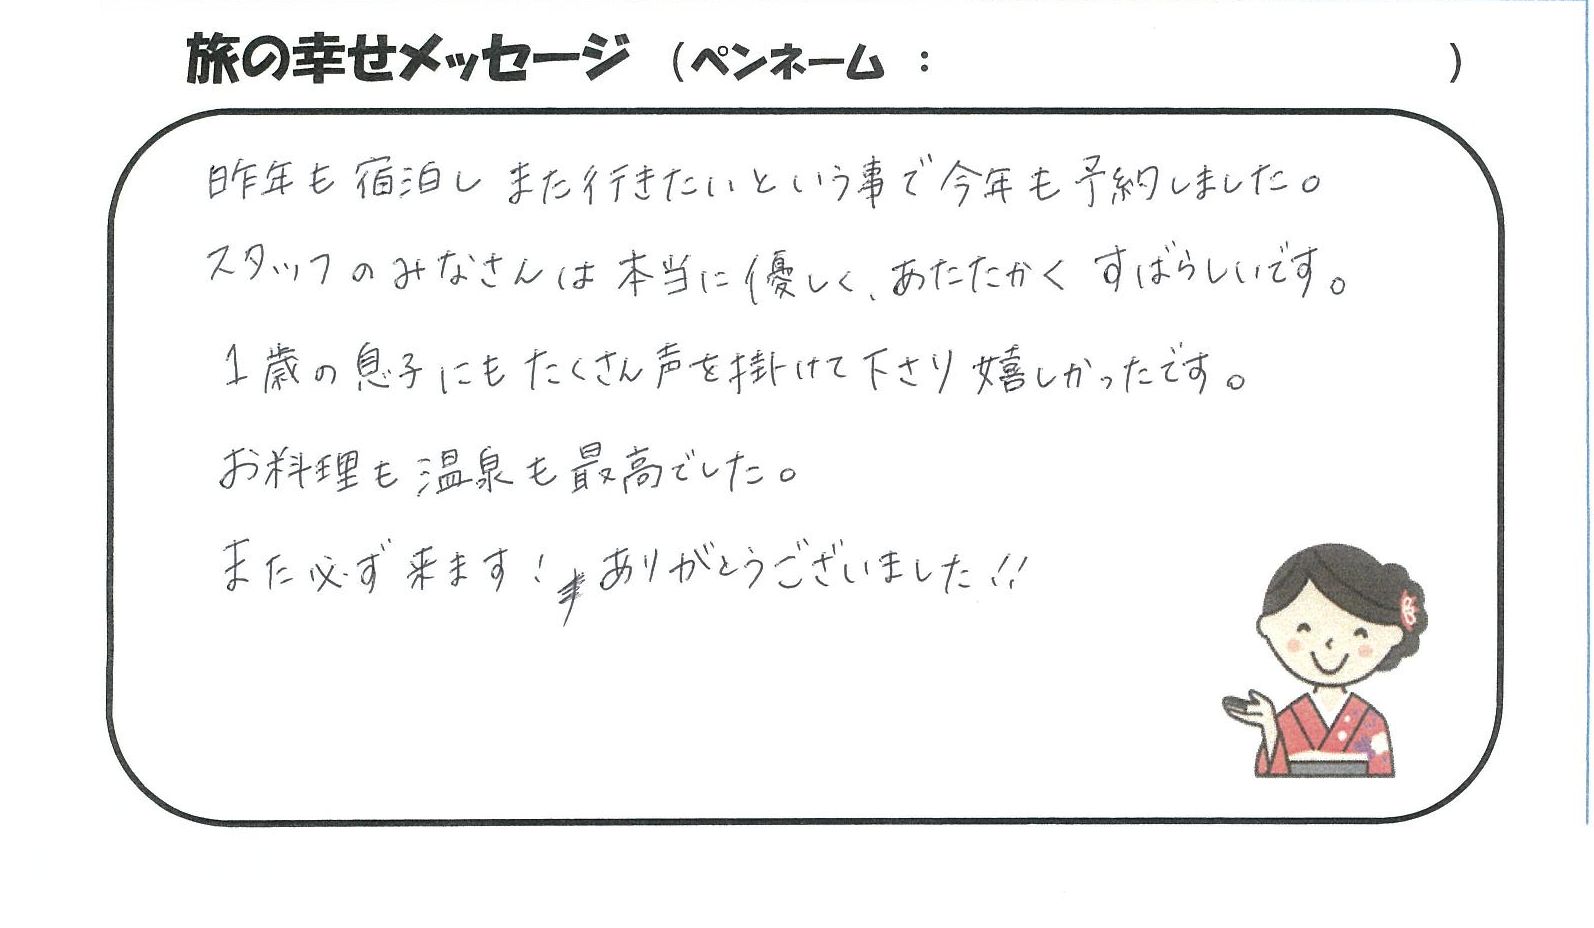 旅の幸せメッセージ （ペンネーム ： ）
昨年も宿泊し また行きたいという事で今年も予約しました。
スタッフのみなさんは本当に優しく、あたたかく すばらしいです。
1歳の息子にもたくさん声を掛けて下さり嬉しかったです。
お料理も温泉も最高でした。
また必ず来ます! ありがとうございました!!